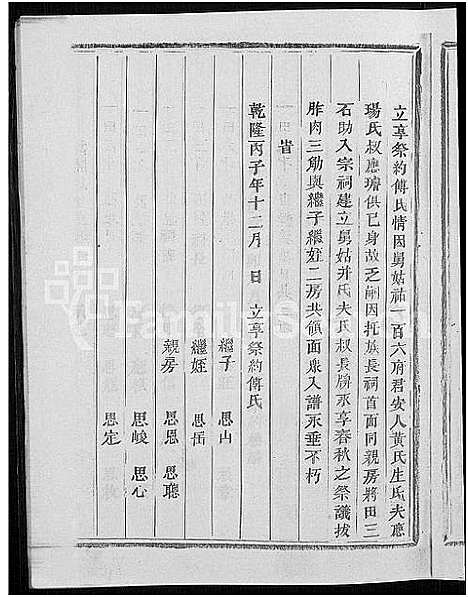 立享祭約傅氏情因舅姑祐一百六府君安人黃氏生氏夫應
瑒氏叔應瓊俱已身故乏嗣因托族長祠首面同親房將田三
石助入宗祠建立舅姑并氏夫氏叔長牌永享春秋之祭議拔
胙肉三觔與繼子繼姪二房共領面衆入譜永垂不朽
旹
乾隆丙子年十二月 日 立享祭約傅氏
繼子 思山
繼姪 思岳
親房 思恩 思聰
思峻 思心
思定
FamilySearch